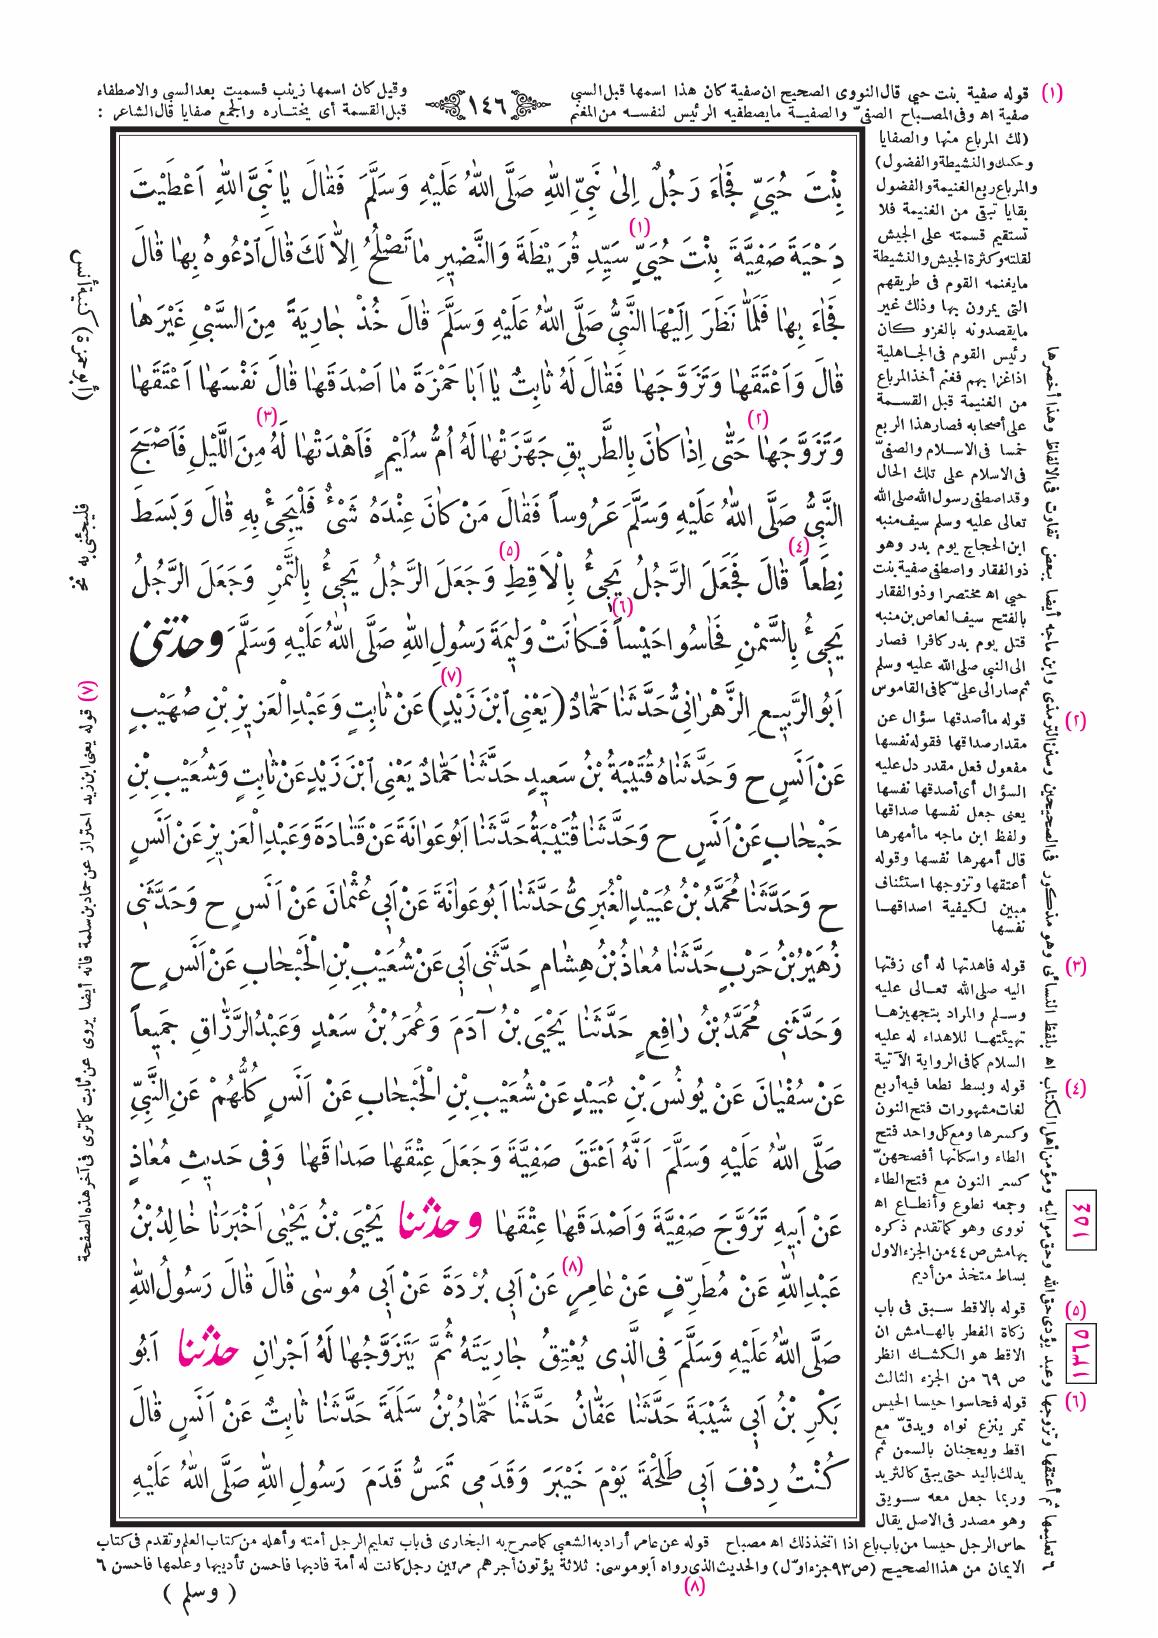 ﴿١٤٦﴾
(١) قوله صفية بنت حيى قال النووى الصحيح ان صفية كان هذا اسمها قبل السبى وقيل كان اسمها زينب فسميت بعد السبى والاصطفاء
صفية اه وفى المصباح الصفىّ والصفيــة مايصطفيه الرئيس لنفسـه من المغنم قبل القسمة أى يختـاره والجمع صفايا قال الشاعر :
بِنْتَ حُيَىٍّ فَجَاءَ رَجُلٌ اِلىٰ نَبِىِّ اللّٰهِ صَلَّى اللّٰهُ عَلَيْهِ وَسَلَّمَ فَقَالَ يَا نَبِىَّ اللّٰهِ اَعْطَيْتَ
دَحْيَةَ صَفِيَّةَ بِنْتَ حُيَىٍّ (١) سَيِّدِ قُرَيْظَةَ وَالنَّضِيرِ مَا تَصْلُحُ اِلَّا لَكَ قَالَ ٱدْعُوهُ بِهَا قَالَ
فَجَاءَ بِهَا فَلَمَّا نَظَرَ اِلَيْهَا النَّبِىُّ صَلَّى اللّٰهُ عَلَيْهِ وَسَلَّمَ قَالَ خُذْ جَارِيَةً مِنَ السَّبْىِ غَيْرَهَا
قَالَ وَاَعْتَقَهَا وَتَزَوَّجَهَا فَقَالَ لَهُ ثَابِتٌ يَا اَبَا حَمْزَةَ مَا اَصْدَقَهَا قَالَ نَفْسَهَا اَعْتَقَهَا
وَتَزَوَّجَهَا (٢) حَتّٰى اِذَا كَانَ بِالطَّرِيقِ جَهَّزَتْهَا لَهُ اُمُّ سُلَيْمٍ فَاَهْدَتْهَا (٣) لَهُ مِنَ اللَّيْلِ فَاَصْبَحَ
النَّبِىُّ صَلَّى اللّٰهُ عَلَيْهِ وَسَلَّمَ عَرُوساً فَقَالَ مَنْ كَانَ عِنْدَهُ شَىْءٌ فَلْيَجِئْ بِهِ قَالَ وَبَسَطَ
نِطَعاً (٤) قَالَ فَجَعَلَ الرَّجُلُ يَجِىءُ بِالْاَقِطِ (٥) وَجَعَلَ الرَّجُلُ يَجِىءُ بِالتَّمْرِ وَجَعَلَ الرَّجُلُ
يَجِىءُ بِالسَّمْنِ فَحَاسُوا حَيْساً (٦) فَكَانَتْ وَلِيمَةَ رَسُولِ اللّٰهِ صَلَّى اللّٰهُ عَلَيْهِ وَسَلَّمَ وحدثنى
اَبُو الرَّبِيعِ الزَّهْرَانِىُّ حَدَّثَنَا حَمَّادٌ (يَعْنِى ٱبْنَ زَيْدٍ) (٧) عَنْ ثَابِتٍ وَعَبْدِ الْعَزِيزِ بْنِ صُهَيْبٍ
عَنْ اَنَسٍ ح وَحَدَّثَنَاهُ قُتَيْبَةُ بْنُ سَعِيدٍ حَدَّثَنَا حَمَّادٌ يَعْنِى ٱبْنَ زَيْدٍ عَنْ ثَابِتٍ وَشُعَيْبِ بْنِ
حَبْحَابٍ عَنْ اَنَسٍ ح وَحَدَّثَنَا قُتَيْبَةُ حَدَّثَنَا اَبُو عَوَانَةَ عَنْ قَتَادَةَ وَعَبْدِ الْعَزِيزِ عَنْ اَنَسٍ
ح وَحَدَّثَنَا مُحَمَّدُ بْنُ عُبَيْدٍ الْغُبَرِىُّ حَدَّثَنَا اَبُو عَوَانَةَ عَنْ اَبِى عُثْمَانَ عَنْ اَنَسٍ ح وَحَدَّثَنِى
زُهَيْرُ بْنُ حَرْبٍ حَدَّثَنَا مُعَاذُ بْنُ هِشَامٍ حَدَّثَنِى اَبِى عَنْ شُعَيْبِ بْنِ الْحَبْحَابِ عَنْ اَنَسٍ ح
وَحَدَّثَنِى مُحَمَّدُ بْنُ رَافِعٍ حَدَّثَنَا يَحْيَى بْنُ آدَمَ وَعُمَرُ بْنُ سَعْدٍ وَعَبْدُ الرَّزَّاقِ جَمِيعاً
عَنْ سُفْيَانَ عَنْ يُونُسَ بْنِ عُبَيْدٍ عَنْ شُعَيْبِ بْنِ الْحَبْحَابِ عَنْ اَنَسٍ كُلُّهُمْ عَنِ النَّبِىِّ
صَلَّى اللّٰهُ عَلَيْهِ وَسَلَّمَ اَنَّهُ اَعْتَقَ صَفِيَّةَ وَجَعَلَ عِتْقَهَا صَدَاقَهَا وَفِى حَدِيثِ مُعَاذٍ
عَنْ اَبِيهِ تَزَوَّجَ صَفِيَّةَ وَاَصْدَقَهَا عِتْقَهَا وحدثنا يَحْيَى بْنُ يَحْيٰى اَخْبَرَنَا خَالِدُ بْنُ
عَبْدِ اللّٰهِ عَنْ مُطَرِّفٍ عَنْ عَامِرٍ (٨) عَنْ اَبِى بُرْدَةَ عَنْ اَبِى مُوسٰى قَالَ قَالَ رَسُولُ اللّٰهِ
صَلَّى اللّٰهُ عَلَيْهِ وَسَلَّمَ فِى الَّذِى يُعْتِقُ جَارِيَتَهُ ثُمَّ يَتَزَوَّجُهَا لَهُ اَجْرَانِ حدثنا اَبُو
بَكْرِ بْنُ اَبِى شَيْبَةَ حَدَّثَنَا عَفَّانُ حَدَّثَنَا حَمَّادُ بْنُ سَلَمَةَ حَدَّثَنَا ثَابِتٌ عَنْ اَنَسٍ قَالَ
كُنْتُ رِدْفَ اَبِى طَلْحَةَ يَوْمَ خَيْبَرَ وَقَدَمِى تَمَسُّ قَدَمَ رَسُولِ اللّٰهِ صَلَّى اللّٰهُ عَلَيْهِ
(لك المرباع منها والصفايا
وحكمك والنشيطة والفضول)
والمرباع ربع الغنيمة والفضول
بقايا تبقى من الغنيمة فلا
تستقيم قسمته على الجيش
لقلته وكثرة الجيش والنشيطة
مايغنمه القوم فى طريقهم
التى يمرون بها وذلك غير
مايقصدونه بالغزو كان
رئيس القوم فى الجاهلية
اذا غزا بهم فغنم أخذ المرباع
من الغنيمة قبل القسمـة
على أصحابه فصار هذا الربع
خمسا فى الاسلام والصفىّ
فى الاسلام على تلك الحال
وقد اصطفى رسول الله صلى الله
تعالى عليه وسلم سيف منبه
ابن الحجاج يوم بدر وهو
ذو الفقار واصطفى صفية بنت
حيى اه مختصرا وذو الفقار
بالفتح سيف العاص بن منبه
قتل يوم بدر كافرا فصار
الى النبى صلى الله عليه وسلم
ثم صار الى علىّ كما فى القاموس
(٢) قوله ما أصدقها سؤال عن
مقدار صداقها فقوله نفسها
مفعول فعل مقدر دل عليه
السؤال أى أصدقها نفسها
يعنى جعل نفسها صداقها
ولفظ ابن ماجه ما أمهرها
قال أمهرها نفسها وقوله
أعتقها وتزوجها استئناف
مبين لكيفية اصداقهـا
نفسها
(٣) قوله فاهدتها له أى زفتها
اليه صلى الله تعـالى عليه
وسـلم والمراد بتجهيزهـا
تهيئتهـا للاهداء له عليه
السلام كما فى الرواية الآتية
(٤) قوله وبسط نطعا فيه أربع
لغات مشهورات فتح النون
وكسرها ومع كل واحد فتح
الطاء واسكانها أفصحهنّ
كسر النون مع فتح الطاء
وجمعه نطوع وأنطـاع اه
نووى وهو كما تقدم ذكره
بهامش ص ٤٤ من الجزء الاول
بساط متخذ من أديم
(٥) قوله بالاقط سـبق فى باب
زكاة الفطر بالهـامش ان
الاقط هو الكشـك انظر
ص ٦٩ من الجزء الثالث
(٦) قوله فحاسوا حيسا الحيس
تمر ينزع نواه ويدقّ مع
اقط ويعجنان بالسمن ثم
يدلك باليد حتى يبقى كالثريد
وربما جعل معه سـويق
وهو مصدر فى الاصل يقال
حاس الرجل حيسا من باب باع اذا اتخذ ذلك اه مصباح قوله عن عامر أراد به الشعبى كما صرح به البخارى فى باب تعليم الرجل أمته وأهله من كتاب العلم وتقدم فى كتاب
الايمان من هذا الصحيح (ص ٩٣ جزء اوّل) والحديث الذى رواه أبوموسى: ثلاثة يؤتون أجرهم مرتين رجل كانت له أمة فاديها فاحسن تأديبها وعلمها فاحسن ٦
(٨)
( وسلم )
٦ تعليمها ثم أعتقها وتزوجها وعبد يؤدى حق الله وحق مواليه ومؤمن أهل الكتاب اه بلفظ النسائى وهو مذكور فى الصحيحين وسنن الترمذى وابن ماجه أيضا بعض تفاوت فى الالفاظ وهذا أخصرها
(أبو حمزة) كنية أنس
فليجئنى به نخ
(٧) قوله يعنى ابن زيد احتراز عن حماد بن سلمة فانه أيضا يروى عن ثابت كما ترى فى آخر هذه الصفحة